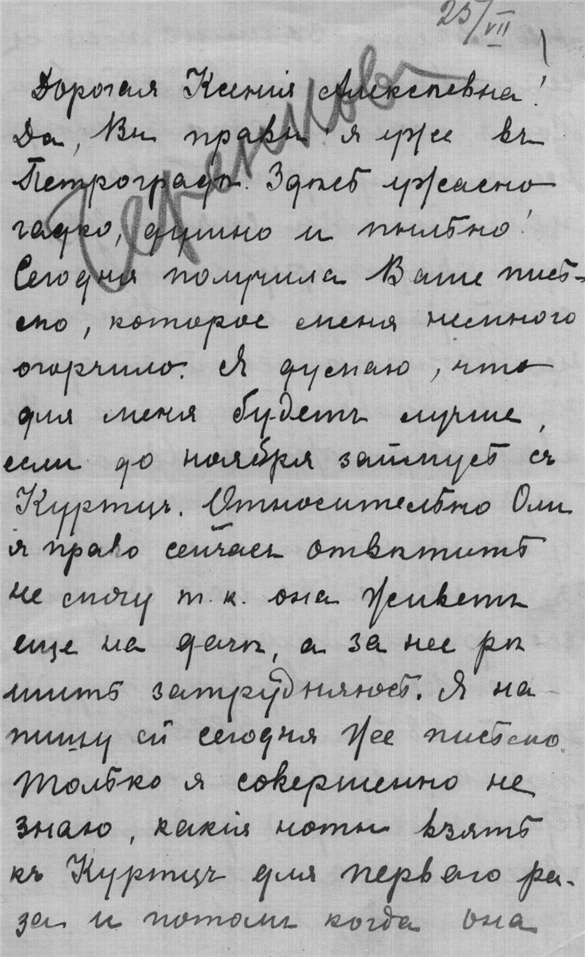 25/VII
Дорогая Ксенія Алексѣевна!
Да, Вы правы я уже въ
Петроградѣ. Здѣсь ужасно
гадко, душно и пыльно!
Сегодня получила Ваше пись-
мо, которое меня немного
огорчило. Я думаю, что
для меня будетъ лучше,
если до ноября займусь съ
Куртцъ. Относительно Оли
я право сейчасъ отвѣтить
не могу т.к. она живетъ
еще на дачѣ, а за нее рѣ
шить затрудняюсь. Я на-
пишу ей сегодня же письмо.
Только я совершенно не
знаю, какія ноты взять
къ Куртцъ для перваго ра-
за и потомъ когда она